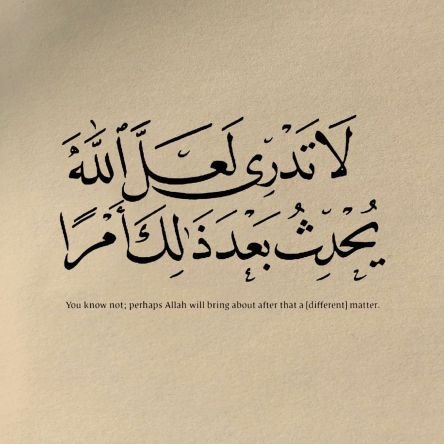 لَا تَدْرِى لَعَلَّ ٱللَّهَ
يُحْدِثُ بَعْدَ ذَٰلِكَ أَمْرًا
You know not; perhaps Allah will bring about after that a [different] matter.